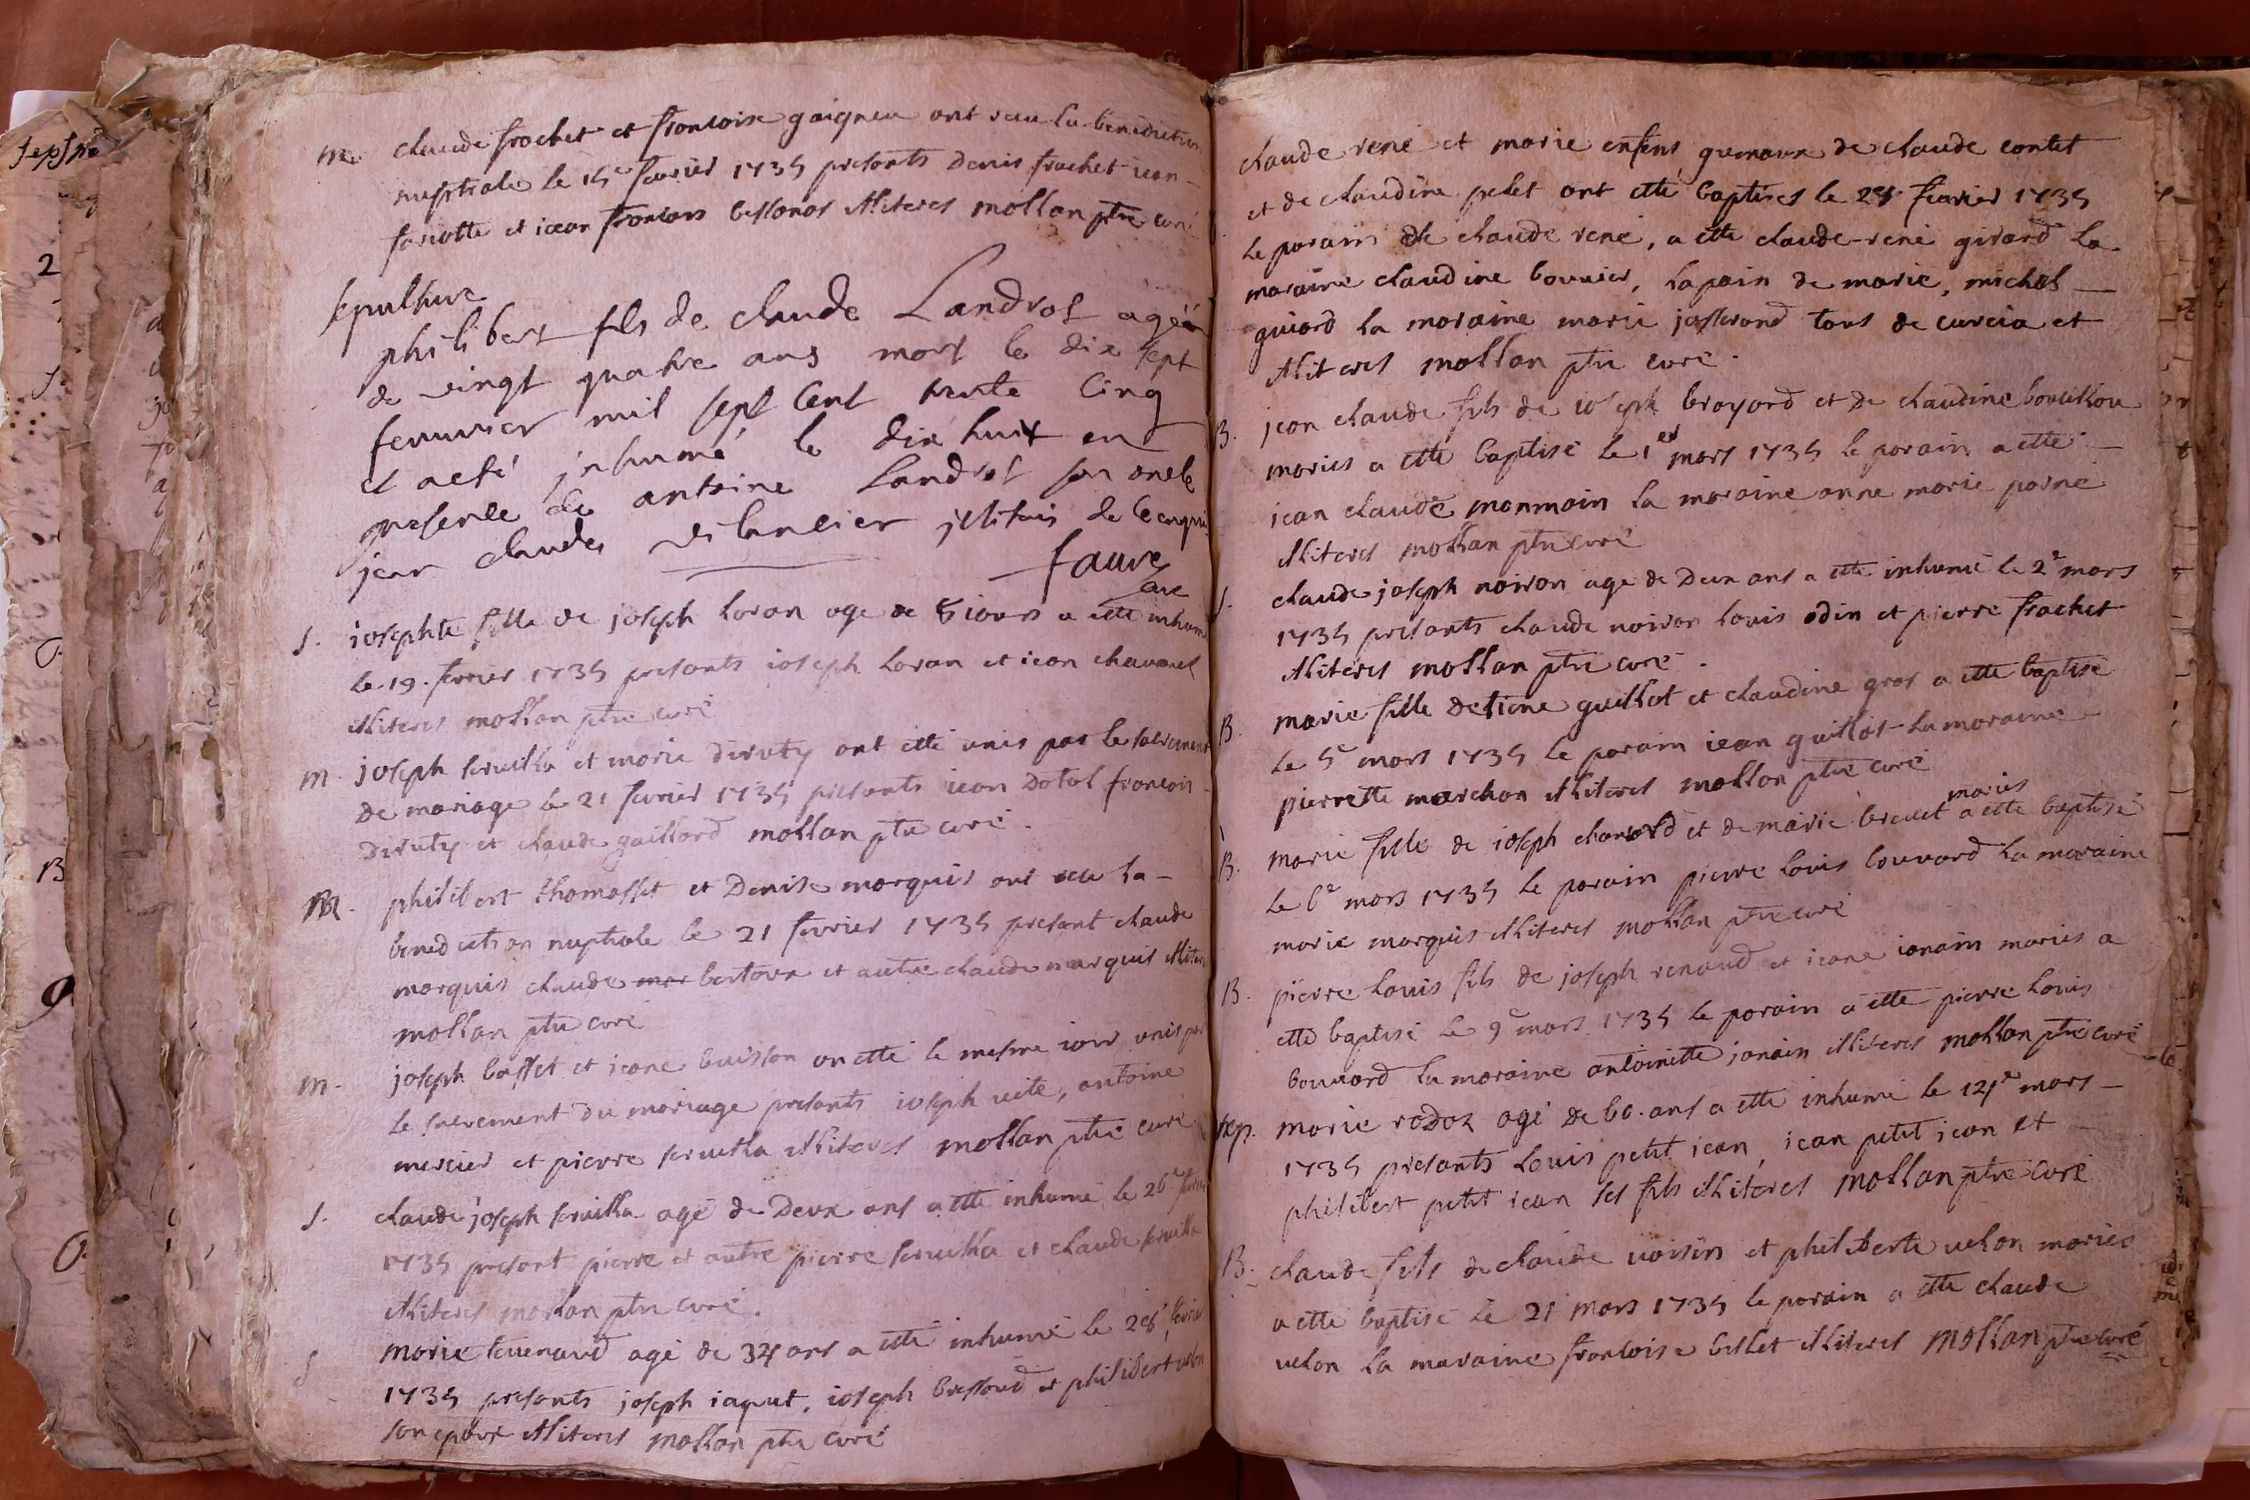 m. claude frochet et francoise gaigneu ont recu la benediction
nuptiale le 15e fevrier 1735 presants denis frachet jean
et jean francois illiteres mollan ptre curé
sepulture
philibert fils de claude Landrot agé
de vingt quatre ans mort le dix sept
feuvrier mil sept cent trente cinq
et a eté inhumé le dix huit en
presence de antoine Landrot son oncle
jean claude illiteres de ce enquis
fauvre
curé
S. josephte fille de joseph loran age de 6 iours a ette inhum
le 19. fevrier 1735 presants ioseph loran et iean chavanel
illiteres mollan ptre curé
m. joseph servilla et marie diruty ont etté unis par le sacrement
de mariage le 21 fevrier 1735 presants iean dotal francois
diruty et claude gaillard mollan ptre curé.
M. philibert thomasset et denise marquis ont recu la
benediction nuptiale le 21 fevrier 1735 presant claude
marquis claude mar bertoux et autre claude marquis illiteres
mollan ptre curé
m. joseph basset et ieane buisson on etté le mesme iour unis par
le sacrement du mariage presants ioseph veite, antoine
mercier et pierre servilla illiteres mollan ptre curé
S. claude joseph servilla agé de deux ans a ette inhumé le 26e fevrier
1735 presant pierre et autre pierre servilla et claude servilla
illiteres mollan ptre curé.
S marie agé de 34 ans a etté inhumé le 28e fevrier
1735 presants joseph iaquet, ioseph bressoud et philibert velon
son epoux illiteres mollan ptre curé
claude rené et marie enfens gumaux de claude contet
et de claudine pelet ont etté baptises le 28 fevrier 1735
le parain de claude rené, a ette claude-rené girard la
maraine claudine bouvier, lapain de marie, michel
guiard la maraine marie josserand tous de curcia et
illiteres mollan ptre curé.
B. jean claude fils de ioseph broyard et de claudine bouillou
maries a etté baptisé le 1er mars 1735 le parain a ette
iean claude monmain la maraine anne marie parné
illiteres mollan ptre curé
S. claude joseph noiron age de deux ans a ette inhumé le 2e mars
1735 presants claude noiron louis odin et pierre frachet
illiteres mollan ptre curé.
B. marie fille detiene guillot et claudine gros a ette baptisé
le 5e mars 1735 le parain iean guillot la maraine
pierrette marchon illiteres mollan ptre curé
maries
B. marie fille de ioseph chanard et de marie brevet a ette baptisé
le 6e mars 1735 le parain pierre louis bouvard la maraine
marie marquis illiteres mollan ptre curé
B. pierre louis fils de joseph renaud et ieane ianain maries a
etté baptisé le 9e mars 1735 le parain a ette pierre louis
bouvard la maraine antoinette janain illiteres mollan ptre curé
Sep. marie rodoz agé de 60. ans a etté inhumé le 12e mars
1735 presants louis petit jean, iean petit jean et
philibert petit iean ses fils illiteres mollan ptre curé
B. claude fils de claude voisin et philiberte velon maries
a ette baptisé le 21 mars 1735 le parain a ette claude
velon la maraine francoise billet illiteres mollan ptre curé